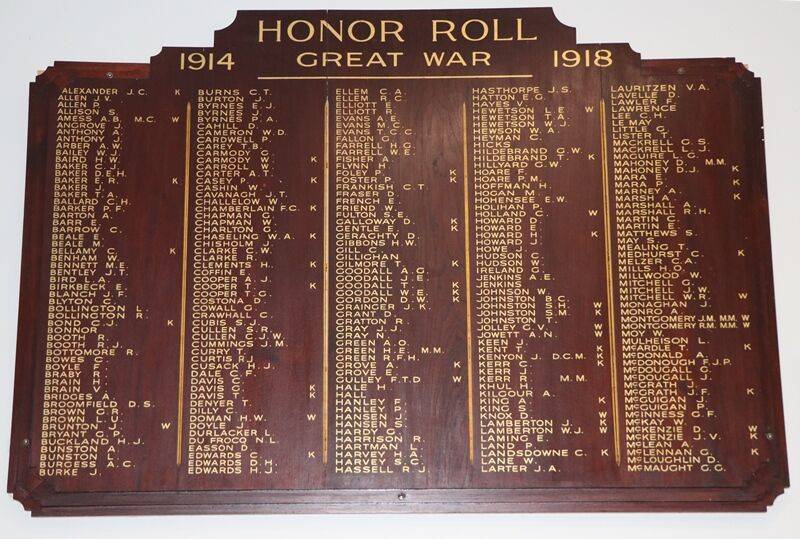 HONOR ROLL
1914 GREAT WAR 1918
ALEXANDER J.C. K
ALLEN J.V.
ALLEN P.
ALLISON S.
AMESS A.B. M.C. W
ANGROVE A.
ANTHONY A.
ANTHONY J.
ARBER A.W.
BAILEY W.J.
BAIRD H.W.
BAKER C.J.
BAKER D.E.H.
BAKER E.R. K
BAKER J.
BAKER T.A.
BALLARD C.H.
BARKER P.F.
BARTON A.
BARR E.
BARROW C.
BEALE E.
BEALE M.
BELLAMY C. K
BENHAM W.
BENNETT M.E.
BENTLEY J.T.
BIRD L.A.
BIRKBECK E.
BLANCH J.F.
BLYTON G.
BOLLINGTON L.
BOLLINGTON R.
BOND C.J. K
BONNOR
BOOTH R.
BOOTH R.J.
BOTTOMORE R.
BOWES G.
BOYLE F.
BRABY R.
BRAIN H.
BRAIN V.
BRIDGES A.
BROOMFIELD D.S.
BROWN G.R.
BROWN L.U.
BRUNTON J. W
BRYANT G.P.
BUCKLAND H.J.
BUNSTON A.
BUNSTON L.
BURGESS A.C.
BURKE J.
BURNS C.T.
BURTON J.
BYRNES E.J.
BYRNES J.
BYRNES P.A.
CAHILL J.
CAMERON W.D.
CARDWELL P.
CAREY T.B.
CARMODY G.
CARMODY W. K
CARROLL W.
CARTER A.T.
CASEY P. K
CASHIN W.
CAVANAGH J.T.
CHALLELOW W.
CHAMBERLAIN F.C. K
CHAPMAN G.
CHAPMAN W.
CHARLTON G.
CHASELING W.A. K
CHISHOLM J.
CLARKE G.W.
CLARKE R.
CLEMENTS H. K
COFFIN E.
COOPER A.J.
COOPER T.T. K
COOPER W.G.
COSTON A.
COWALL G.
CRAWHALL C.
CUBIS S.J.
CULLEN S.R.
CULLEN C.J.W.
CUMMINGS J.M.
CURRY T.
CURTIS T.J.
CUSACK H.J.
DALE C.F.
DAVIS C.
DAVIS G. K
DAVIS T. K
DENYER T.
DILLY C.
DOMAN H.W. W
DOYLE J.
DURLACKER L.
DU FROCQ N.L.
EASSON D.
EDWARDS C. K
EDWARDS D.H.
EDWARDS H.J.
ELLEM C.A.
ELLEM R.C.
ELLIOTT E.
ELLIOTT R.
EVANS A.E.
EVANS M.C.
EVANS T.C.C.
FALLON G.
FARRELL H.G.
FARRELL W.E.
FISHER A.
FLYNN H.
FOLEY P. K
FOSTER P. K
FRANKISH C.T.
FRASER D.
FRENCH E.
FRIEND W.
FULTON S.E.
GALLOWAY D. K
GENTLE E. K
GERAGHTY D.
GIBBONS H.W.
GILL C.
GILLIGHAN
GILMORE T. K
GOODALL A.G.
GOODALL J.E.
GOODALL J.T. K
GOODALL L.E. K
GORDON D.W. K
GRAINGER J.K.
GRANT D.
GRATTON R.
GRAY J.J.
GRAY N.
GREEN A.O.
GREEN H.E. M.M.
GREEN R.F.H.
GROVE A. K
GROVE E. K
GULLEY F.T.D W
HALE H.
HALL
HANLEY F.
HANLEY P.
HANSEN J.
HANSEN S.
HARDY G.
HARRISON R.
HARTMAN L.
HARVEY H.A.
HARVEY S.G.
HASSELL R.J.
HASTHORPE J.S.
HATTON E.G.
HAYES V.
HEWETSON L.E. W
HEWETSON T.A.
HEWETSON W.J.
HEWSON W.A.
HEYMAN C.
HICKS
HILDEBRAND G.W.
HILDEBRAND T. K
HILLYARD G.W.
HOARE F.
HOARE P.M.
HOFFMAN H.
HOGAN M.
HOHENSEE E.W.
HOLIHAN P.
HOLLAND G. W
HOWARD D.
HOWARD E.
HOWARD H. K
HOWARD J.
HOWE J.
HUDSON C.
HUDSON W.
IRELAND G.
JENKINS A.E.
JENKINS
JOHNSON W.
JOHNSTON B.C.
JOHNSTON S.H. W
JOHNSTON S.M. K
JOHNSTON T.
JOLLEY G.V. W
JOWETT A.N. W
KEEN J. K
KEEN L. K
KENYON J. D.C.M. K
KERR C. K
KERR J.
KERR R. M.M.
KEUL H.
KILGOUR A.
KING A. K
KING S.
KNOX D. W
LAMBERTON J. K
LAMBERTON W.J.
LAMING E.
LAND P.
LANDSDOWNE C. K
LANE W.
LARTER J.A.
LAURITZEN V.A.
LAVELLE D.
LAWLER F.
LAWRENCE
LEE C.H.
LE MAY
LITTLE G.
LISTER T.
MACKRELL C.S.
MACKRELL E.J.
MAGUIRE L.G.
MAHONEY D. M.M.
MAHONEY D.J. K
MARA E.
MARA P. K
MARNEY A.
MARSH A. K
MARSHALL A.
MARSHALL R.H.
MARTIN C.
MARTIN E.
MATTHEWS S.
MAY S.
MEALING T.
MEDHURST G. K
MELZER C.A.
MILLS H.O.
MILLWOOD W.
MITCHELL G.
MITCHELL J.
MITCHELL W.R. W
MONAGHAN J.
MONRO A.
MONTGOMERY J.M. M.M. W
MONTGOMERY R.M. M.M. W
MOY W.
MULHEISON L.
McARDLE T. K
McDONALD A.
McDONOUGH F.J.P.
McDOUGALL G.
McDOUGALL J.
McGRATH J.
McGRATH J.F. K
McGUIGAN F.
McGUIGAN P.
McINNESS C.F.
McKAY W.
McKENZIE D. W
McKENZIE J.V. K
McLEAN A.
McLENNAN G. K
McLOUGHLIN D.
McMAUGHT G.G.